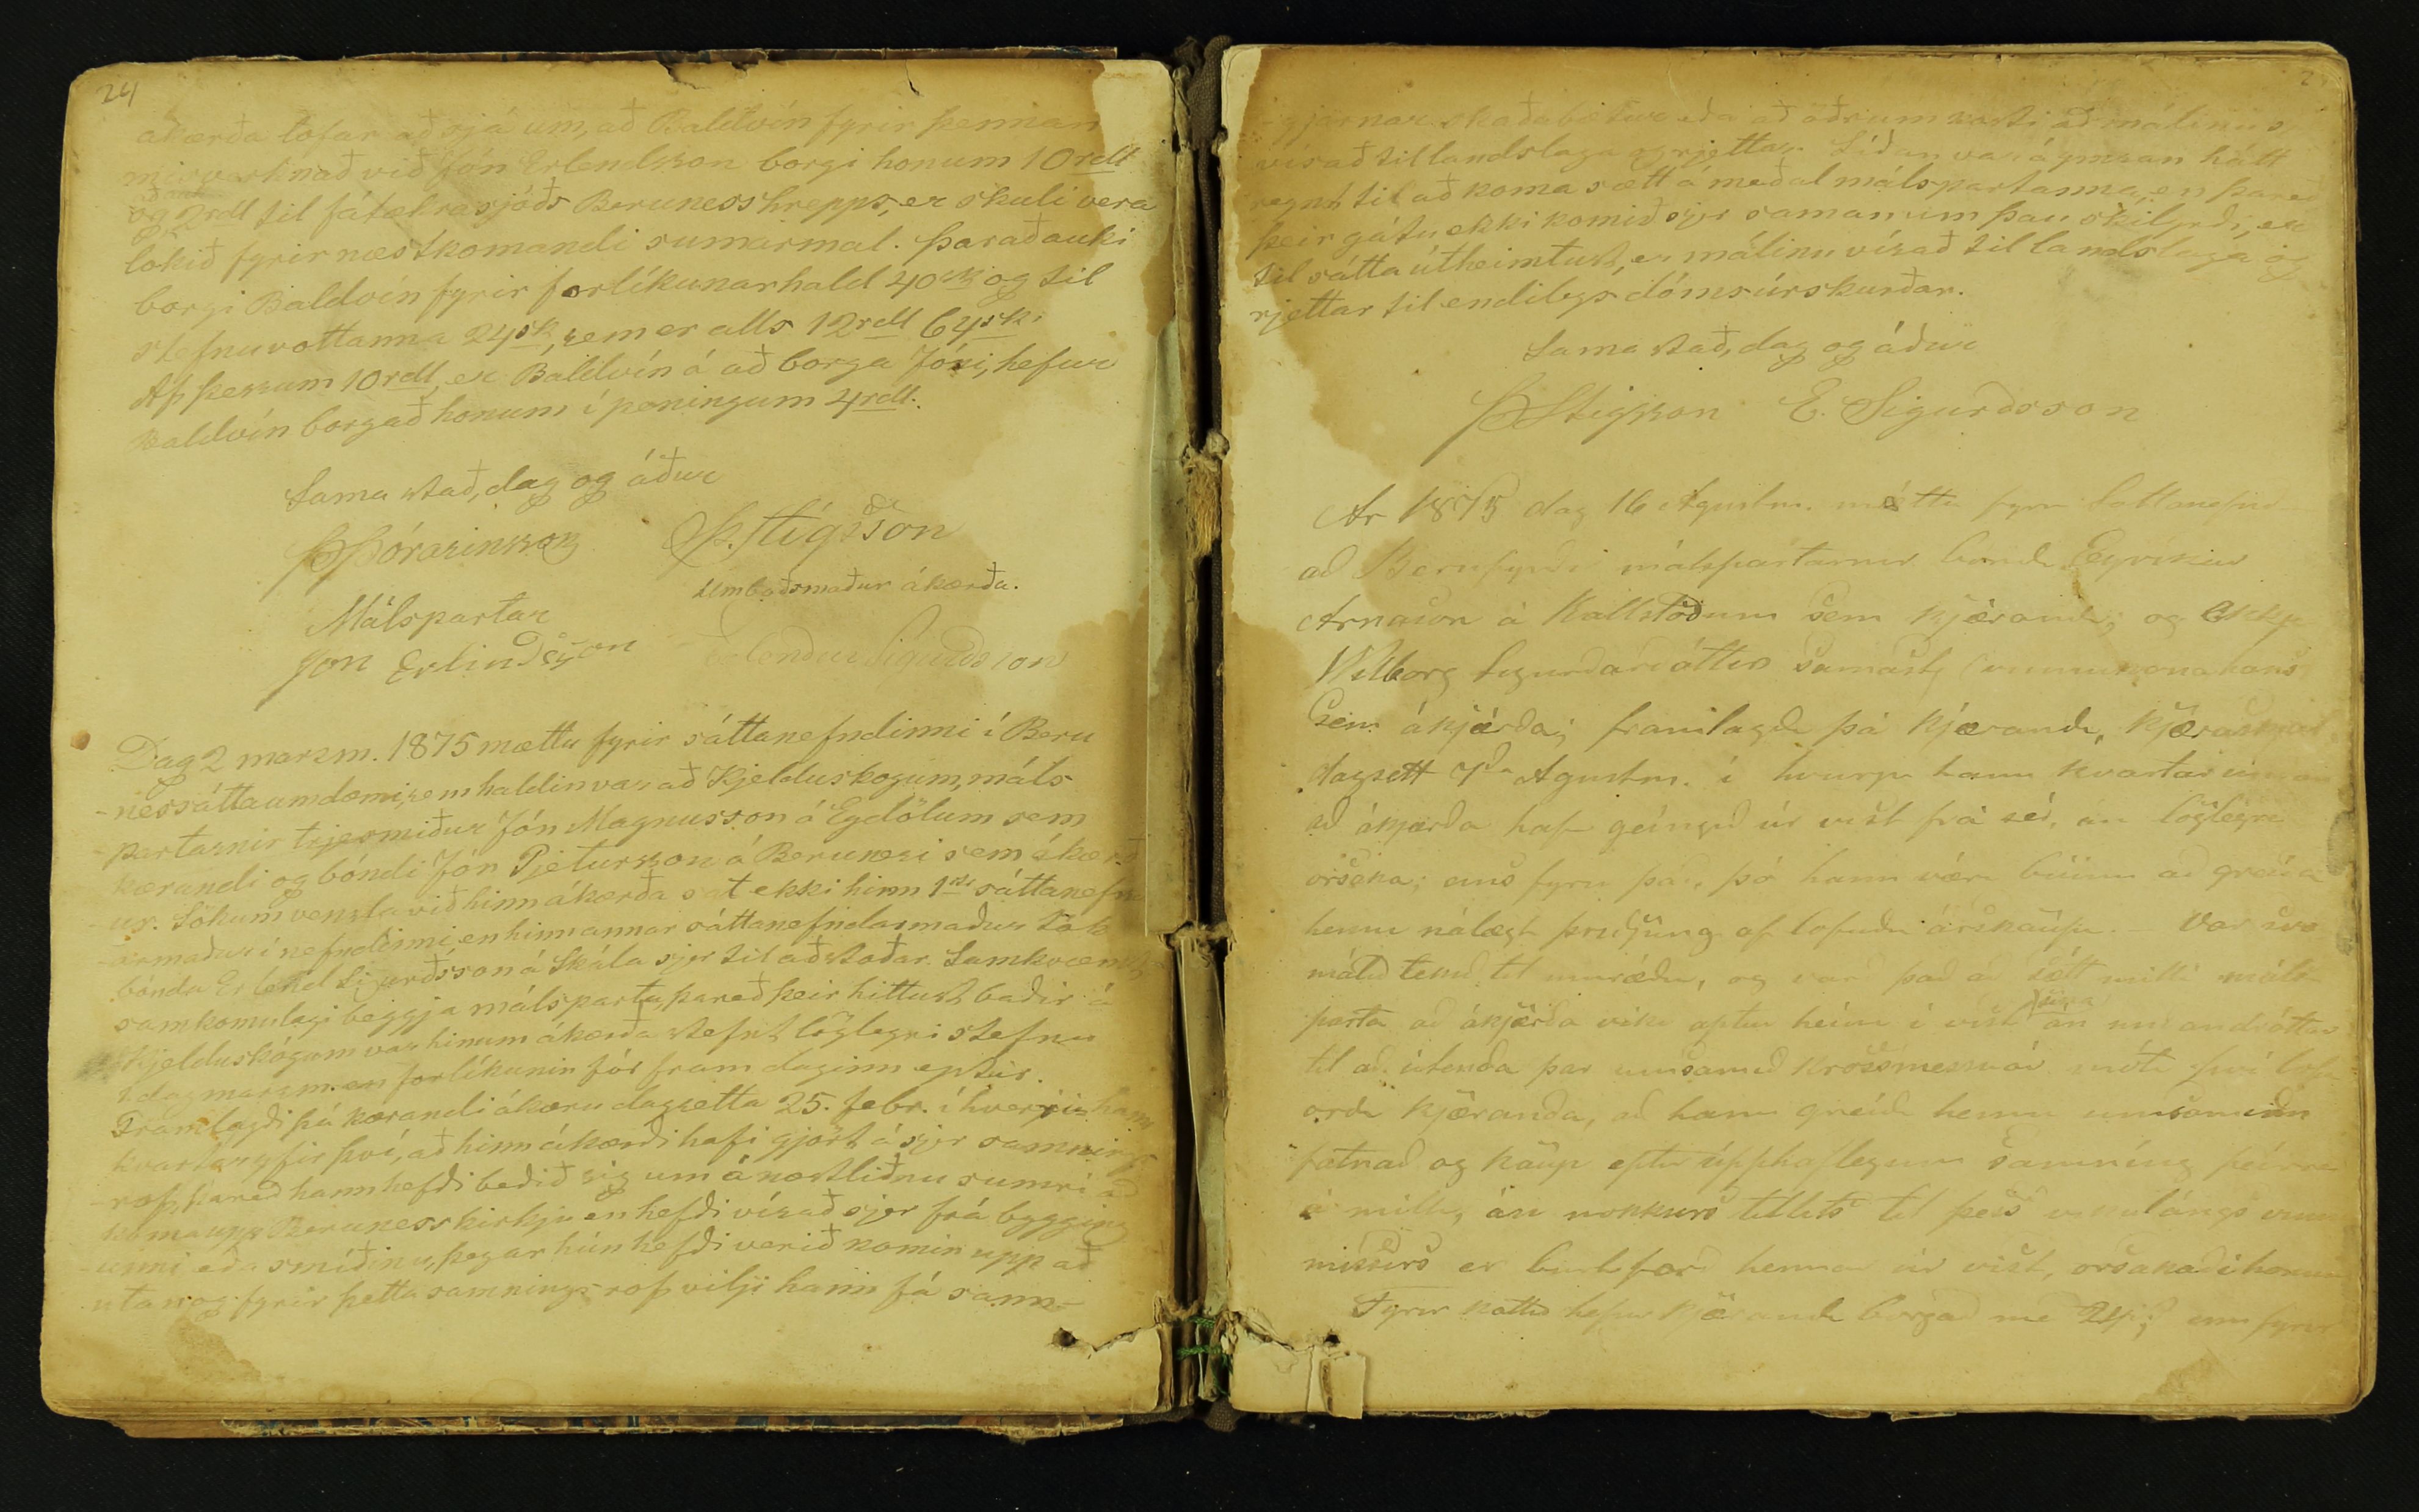 24
akærða lofar að sjá um, að Baldvin fyrir þennan
misverknað við Jón Erlendsson borgi honum 10 rdl
og 2rdl til fátækrasjóðs Beruness hrepps, er skuli vera
lokið fyrir næstkomandi sumarmal. Þaraðauki
borgi Baldvin fyrir forlíkunarhald 40 sk og til
stefnuvottanna 24 sk, sem er alls 12 rdl 64 sk.
Af þessum 10 rdl, er Baldvín á að borga Jóni, hefur
Baldvín borgað honum í peningum 4 rdl.
Sama stað, dag og áður
Þ Þórarinsson Þ. Stígsson
Umboðsmaður ákærða.
Málspartar
Jón Erlindsson Erlendur Sigurdsson
Dag 2 marzm. 1875 mættu fyrir sáttanefndinni í Beru
-nessáttaumdæmi, sem haldin var að Kjelduskogum, máls
-partarnir trjesmiður Jón Magnusson á Eydölum sem
kærandi og bóndi Jón Pjetursson á Berunesi sem ákærð
-ur. Sökum venzla við hinn ákærða sat ekki hinn 1sti sáttanefnd
-armaður í nefndinni, en hinn annar sáttanefndarmaður tók
bónda Erlend Sigurðsson á Skála sjer til aðstoðar. Samkvæmt
samkomulagi beggja málsparta, þareð þeir hittust baðir á
Kjelduskógum var hinum ákærða stefnt löglegri stefnu
1 dag marzm. en forlíkunin fór fram daginn eptir.
Framlagði þá kærandi ákæru dagsetta 25. febr. í hverri hann
kvartar yfir því, að hinn ákærði hafi gjört á sjer samnings
-rof, þareð hann hefði beðið sig um á næstliðnu sumri að
koma upp Beruness kirkju en hefði vísað sjer frá bygging
-unni eða smíðinu, þegar hún hefði verið komin upp að
utan og fyrir þetta samnings rof vilji hann fá sann-
-gjarnar skaðabætur eða að öðrum kosti að málinu sje
vísað til landslaga og rjettar. Síðan var á ymsan hátt
reynt til að koma sætt á meðal málspartanna, en þareð
þeir gátu ekki komið sjer saman um þau skilyrði, er
til sátta útheimtust, er málinu vísað til landslaga og
rjettar til endilegs dómsúrskurðar.
Sama stað, dag og áður
Þ Stígsson E. Sigurðsson
Ar 1875 dag 16 Agustm. mættu fyrir Sattanefnd
að Berufyrði málspartarnir bondi Eyvindur
Arnason á Kallstöðum sem kjærandi; og Ekkja
Vilborg Sigurðardóttir samast. vinnukona hans
sem ákjærða; framlagði þá kjærandi, kjæruskjal
dagsett 7da Agustm. í hvurju hann kvartar undan
að ákjærða hafi geingið úr vist frá sér, án löglegra
orsaka; eins fyrir það, þó hann væri búinn að greiða
henni nálægt þriðjúng af lofuðu árskaupi. - Var svo
málið tekið til umræðu, og varð það að sátt milli máls-
parta að ákjærða viki aptur heim í vist sína án undandráttar
til að útenda þar umsamið krossmessuár móti því lof-
orði kjæranda, að hann greiði henni umsamdan
fatnað og kaup eptir upphaflegum samning þeirra
á milli, án nokkurs tillits til þess vikulángs vinnu
missirs er burtferð hennar úr vist, orsakaði honum
Fyrir kallið hefur kjærandi borgað me 24; enn fyrir